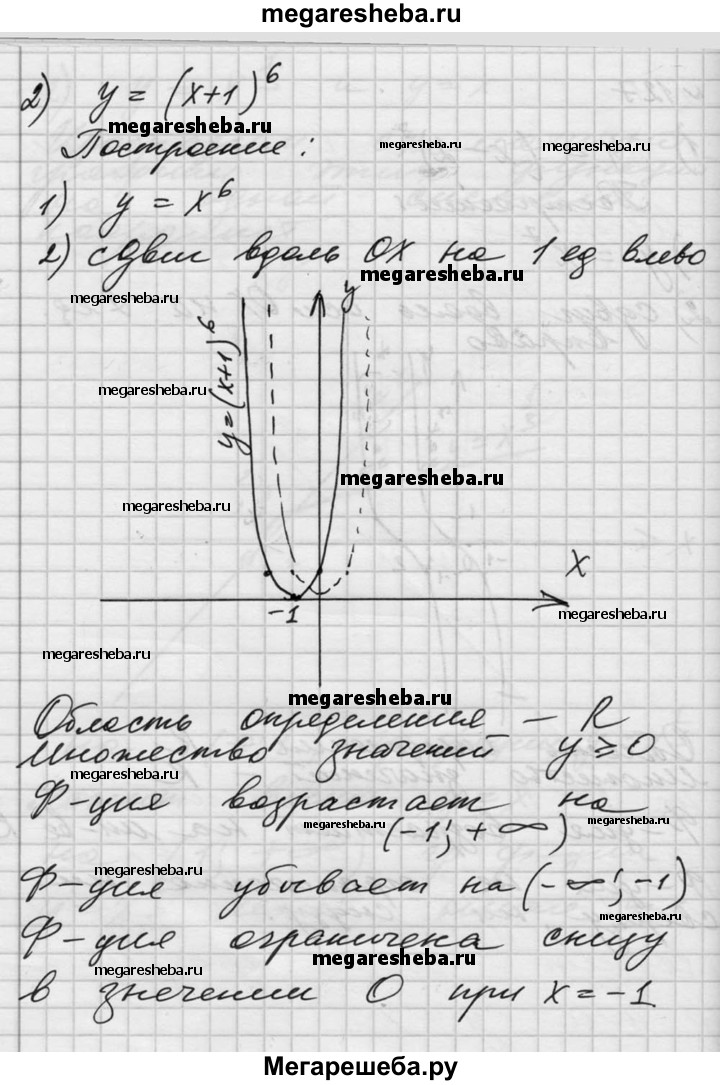 megaresheba.ru
2) y = (x+1)^6
megaresheba.ru
Построение:
megaresheba.ru
megaresheba.ru
1) y = x^6
2) сдвиг вдоль OX на 1 ед влево
megaresheba.ru
megaresheba.ru
y
y=(x+1)^6
megaresheba.ru
megaresheba.ru
megaresheba.ru
X
-1
megaresheba.ru
megaresheba.ru
megaresheba.ru
Область определения – R
Множество значений y ≥ 0
megaresheba.ru
Ф-ция возрастает на
megaresheba.ru
megaresheba.ru
(-1; +∞)
megaresheba.ru
Ф-ция убывает на (-∞; -1)
megaresheba.ru
Ф-ция ограничена снизу
megaresheba.ru
megaresheba.ru
в значении 0 при x = -1
Мегарешеба.ру